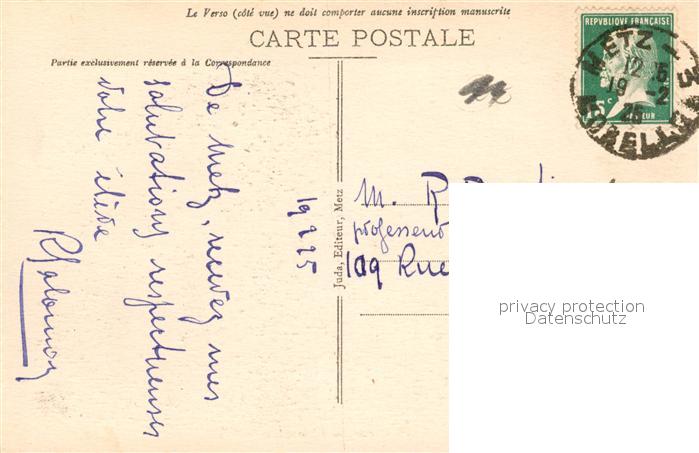 Le Verso (côté vue) ne doit comporter aucune inscription manuscrite
CARTE POSTALE
Partie exclusivement réservée à la Correspondance
REPUBLIQUE FRANÇAISE
15c
METZ - 3
12 15
19 - 2
25
MOSELLE
De Metz, recevez mes
salutations respectueuses
votre élève
19 2 25
Juda, Editeur, Metz
M. R
professeur
109 Rue
privacy protection
Datenschutz